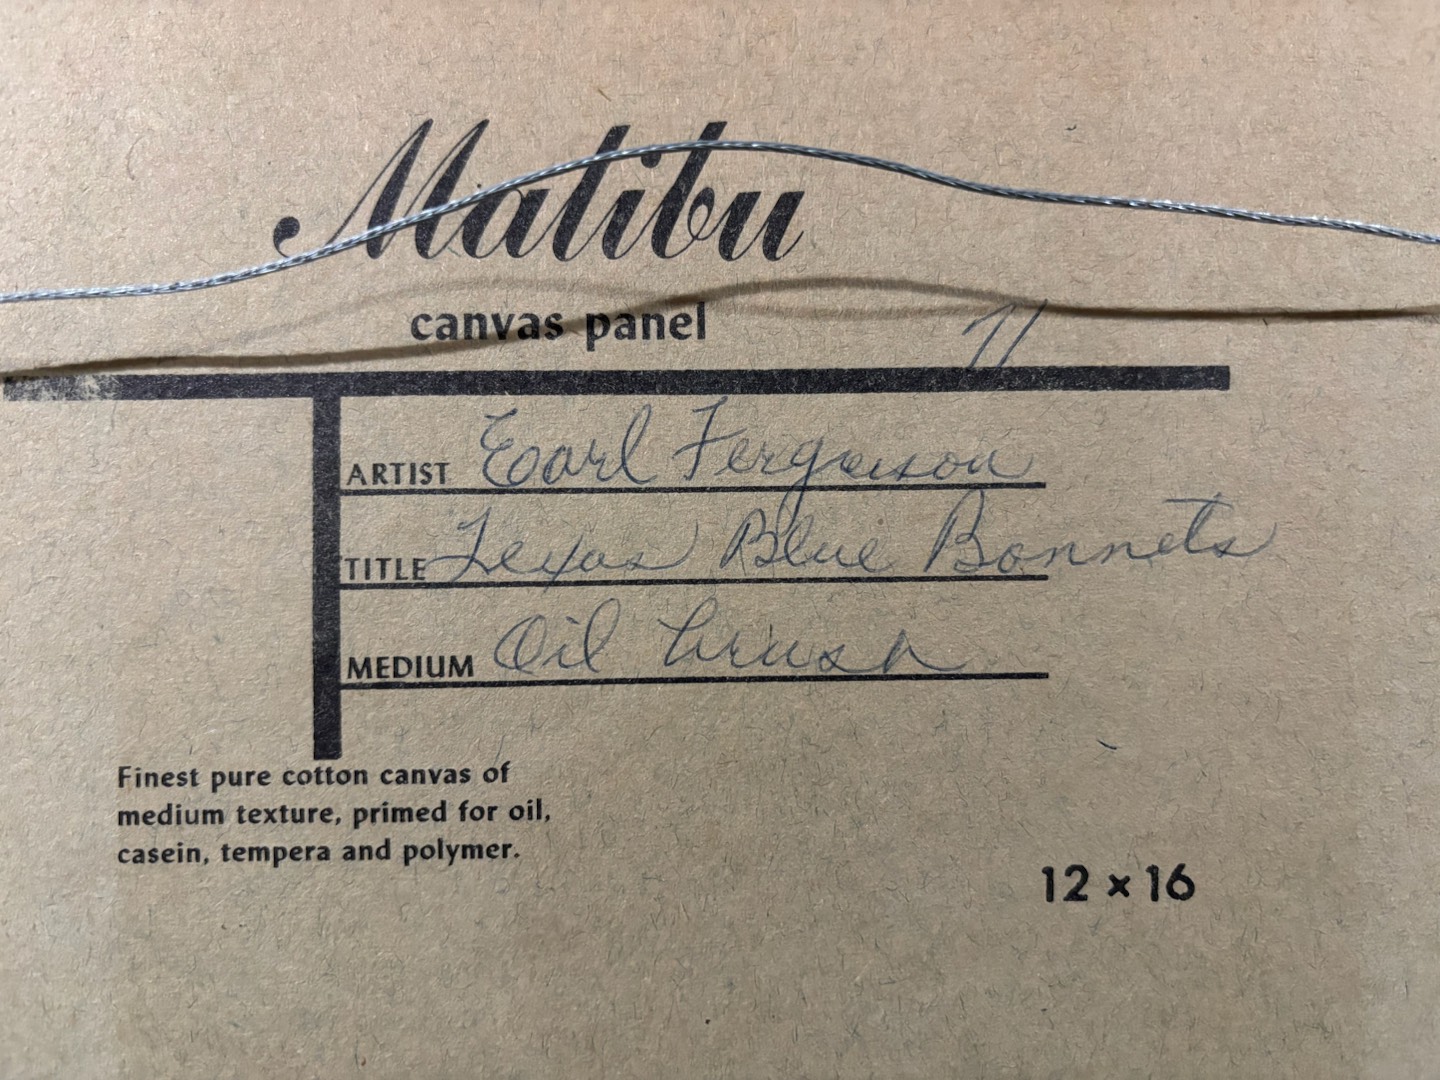 Malibu
canvas panel
71
ARTIST Earl Ferguson
TITLE Texas Blue Bonnets
MEDIUM Oil brush
Finest pure cotton canvas of
medium texture, primed for oil,
casein, tempera and polymer.
12 × 16